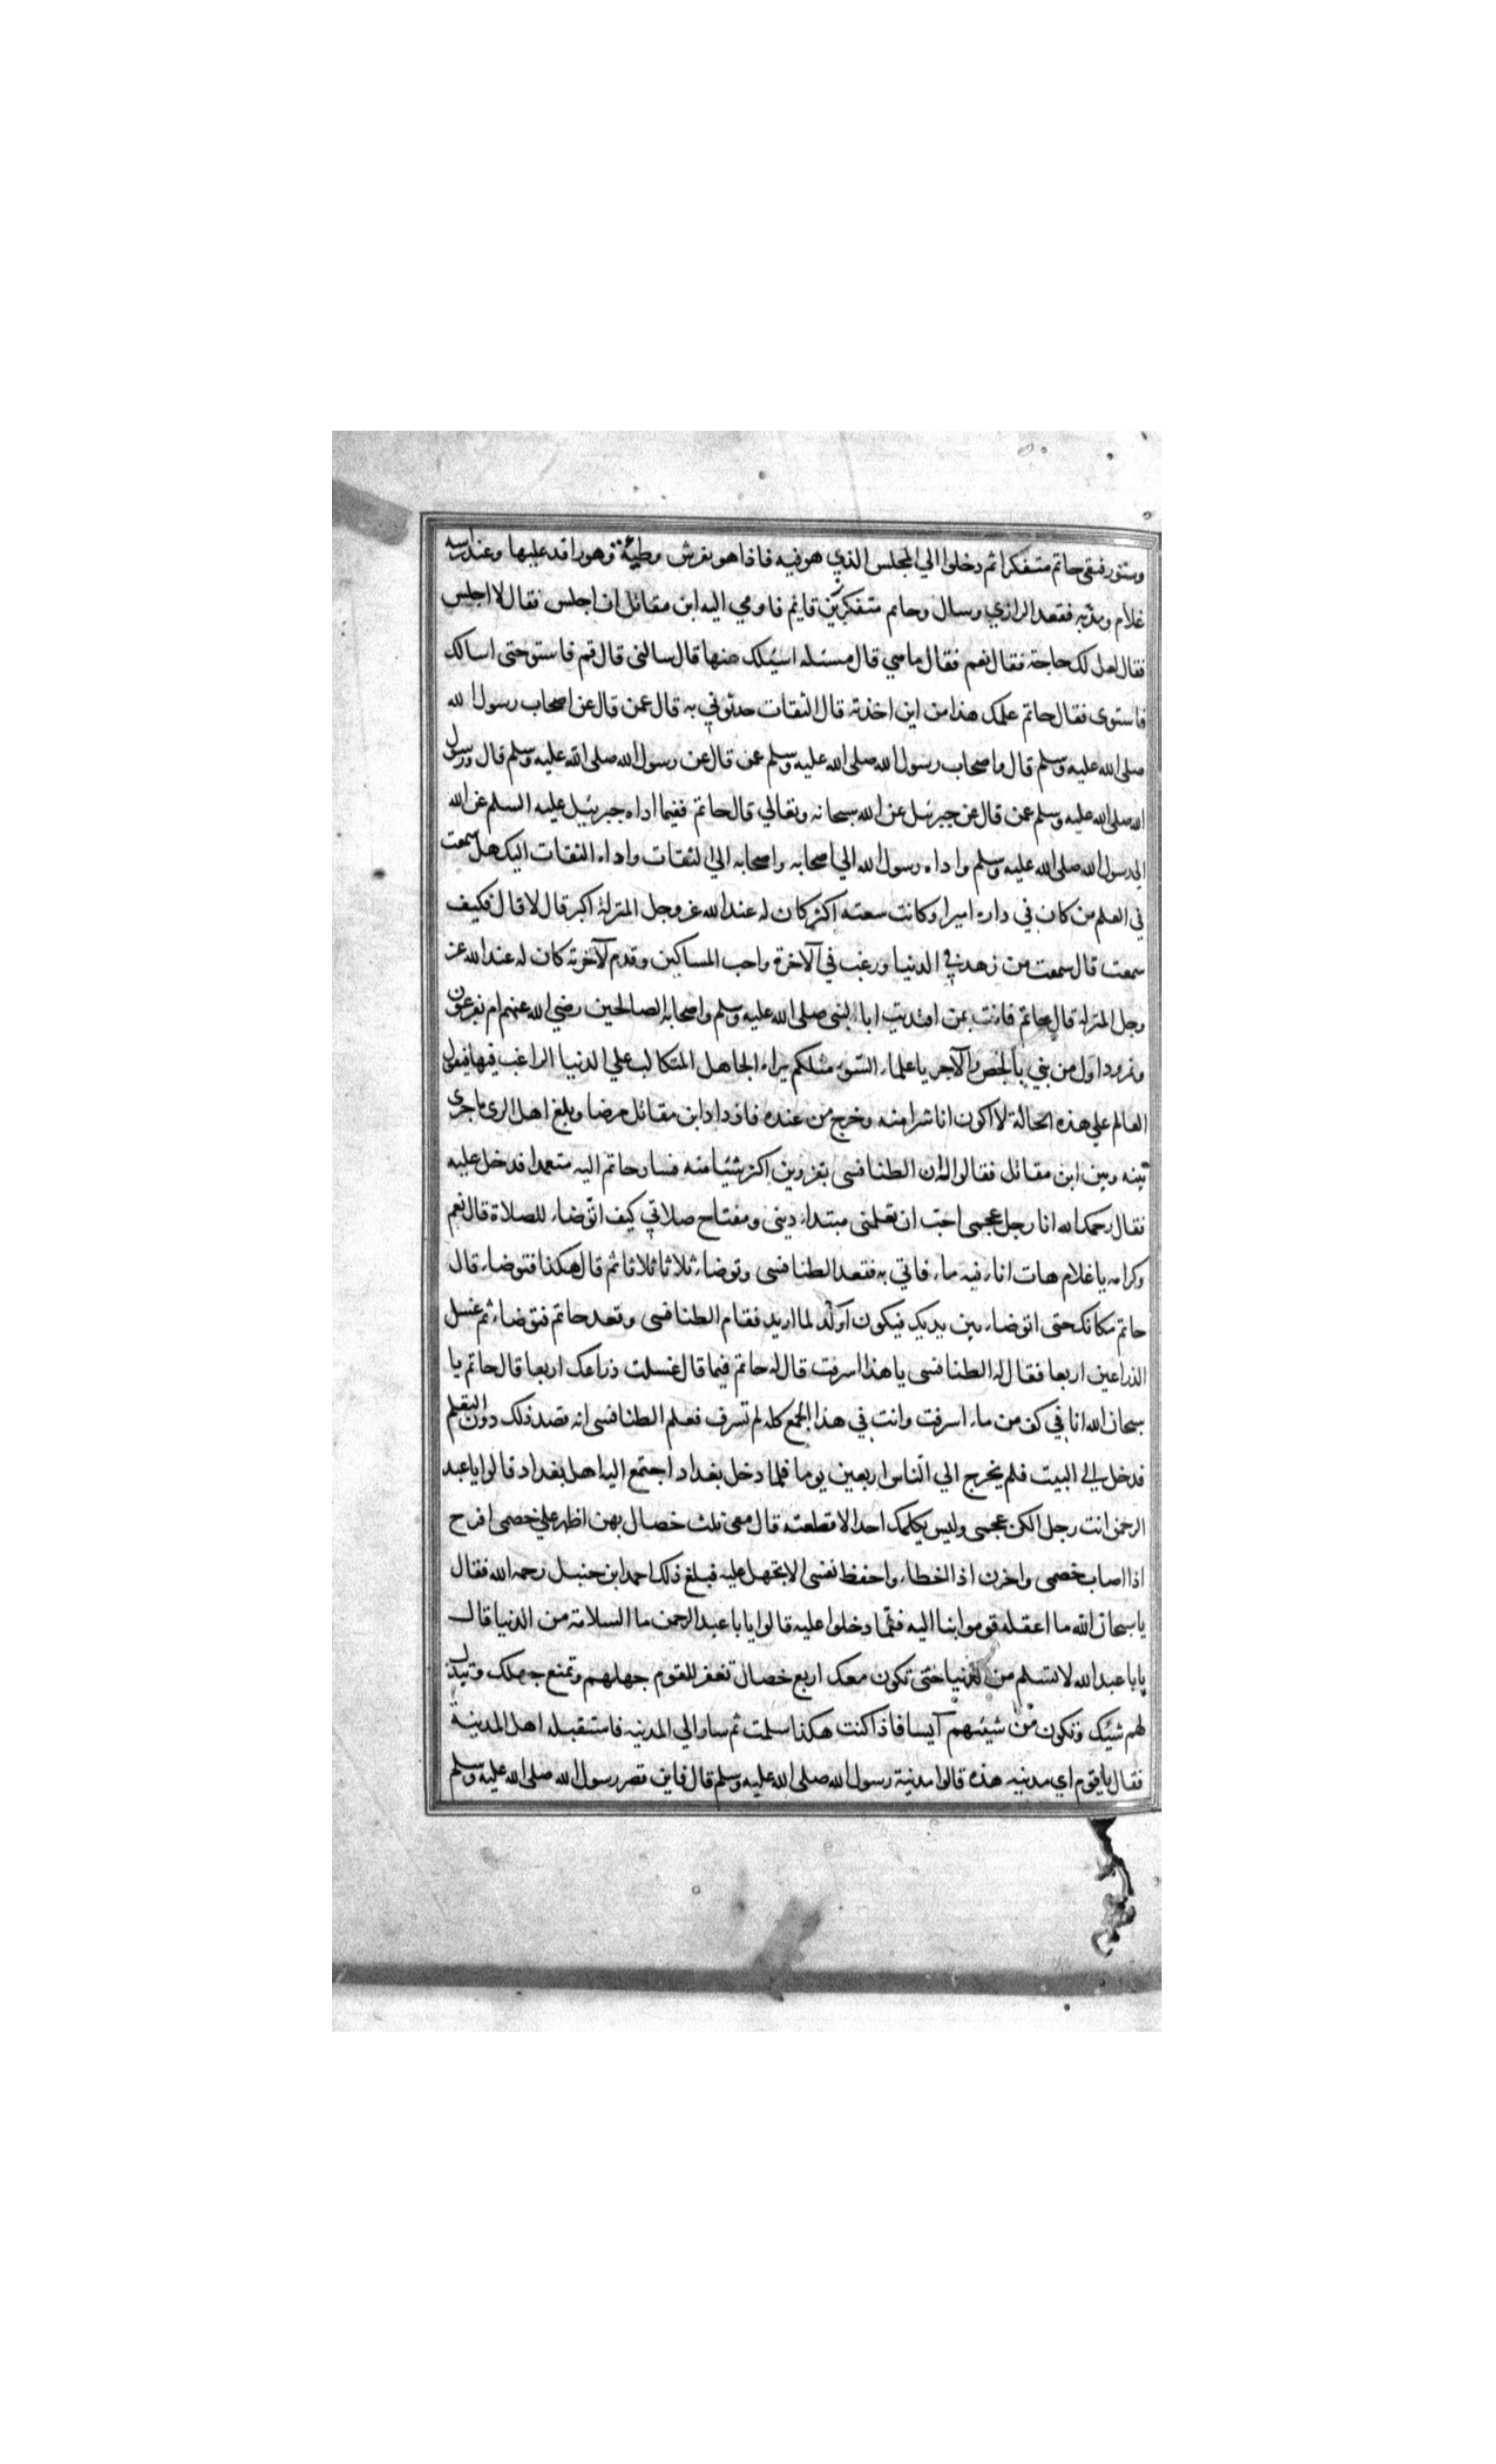 وستور فبقى حاتم متفكرا ثم دخلوا الي المجلس الذي هو فيه فاذا هو بفرش وطيئة وهو راقد عليها وعند راسه
غلام ومذبه فقعد الرازي وسال وحاتم متفكرين قايم فاومي اليه ابن مقاتل ان اجلس فقال لا اجلس
فقال لعل لك حاجة فقال نعم فقال ما هي قال مسئله اسئلك عنها قال سالنى قال قم فاستو حتى اسالك
فاستوى فقال حاتم علمك هذا من اين اخذته قال الثقات حدثوني به قال عمن قال عن اصحاب رسول الله
صلى الله عليه وسلم قال فاصحاب رسول الله صلى الله عليه وسلم عن قال عن رسول الله صلى الله عليه وسلم قال ورسول
الله صلى الله عليه وسلم عن قال عن جبرئيل عن الله سبحانه وتعالي قال حاتم ففيما اداه جبرئيل عليه السلم عن الله
الى رسول الله صلى الله عليه وسلم واداه رسول الله الي اصحابه واصحابه الى الثقات واداه الثقات اليك هل سمعت
في العلم من كان في داره اميرا وكانت سعته اكثر كان له عند الله عز وجل المنزلة اكبر قال لا قال فكيف
سمعت قال سمعت من زهد في الدنيا ورغب في الآخرة واحب المساكين وقدم لآخرته كان له عند الله عز
وجل المنزله قال حاتم فانت بمن اقتديت ابا لنبى صلى الله عليه وسلم واصحابه الصالحين رضي الله عنهم ام بفرعون
ونمرود اول من بني بالجص والآجر يا علماء السوء مثلكم يراه الجاهل المتكالب علي الدنيا الراغب فيها فيقول
العالم علي هذه الحالة لا اكون انا شرا منه وخرج من عنده فازداد ابن مقاتل مرضا وبلغ اهل الرى ما جرى
بينه وبين ابن مقاتل فقالوا له ان الطنافسى بقزوين اكثر شيئا منه فسار حاتم اليه متعمدا فدخل عليه
فقال رحمك الله انا رجل عجمى احب ان تعلمنى مبتداء دينى ومفتاح صلاتي كيف اتوضاء للصلاة قال نعم
وكرامه يا غلام هات اناء فيه ماء فاتي به فقعد الطنافسى وتوضاء ثلاثا ثلاثا ثم قال هكذا فتوضاء قال
حاتم مكانك حتى اتوضاء بين يديك فيكون آوكد لما اريد فقام الطنافسى وقعد حاتم فتوضاء ثم غسل
الذراعين اربعا فقال له الطنافسى يا هذا اسرفت قال له حاتم فيما قال غسلت ذراعك اربعا قال حاتم يا
سبحان الله انا في كف من ماء اسرفت وانت في هذا الجمع كله لم تسرف فعلم الطنافسى انه قصد ذلك دون التعلم
فدخل الى البيت فلم يخرج الي الناس اربعين يوما فلما دخل بغداد اجتمع اليه اهل بغداد قالوا يا عبد
الرحمن انت رجل الكن عجمى وليس يكلمك احد الا قطعته قال معى ثلث خصال بهن اظهر علي خصمى افرح
اذا اصاب خصمى واحزن اذا لخطاء واحفظ نفسى الا تجهل عليه فبلغ ذلك احمد ابن حنبل رحمه الله فقال
يا سبحان الله ما اعقله قوموا بنا اليه فلما دخلوا عليه قالوا يا با عبد الرحمن ما السلامة من الدنيا قال
يا با عبد الله لا تسلم من الدنيا حتى تكون معك اربع خصال تغفر للقوم جهلهم وتمنع جهلك وتبذل
لهم شيئك وتكون من شيئهم آيسا فاذا كنت هكذا سلمت ثم سار الي المدينه فاستقبله اهل المدينة
فقال يا قوم اي مدينيه هذه قالوا مدينة رسول الله صلى الله عليه وسلم قال فاين قصر رسول الله صلى الله عليه وسلم